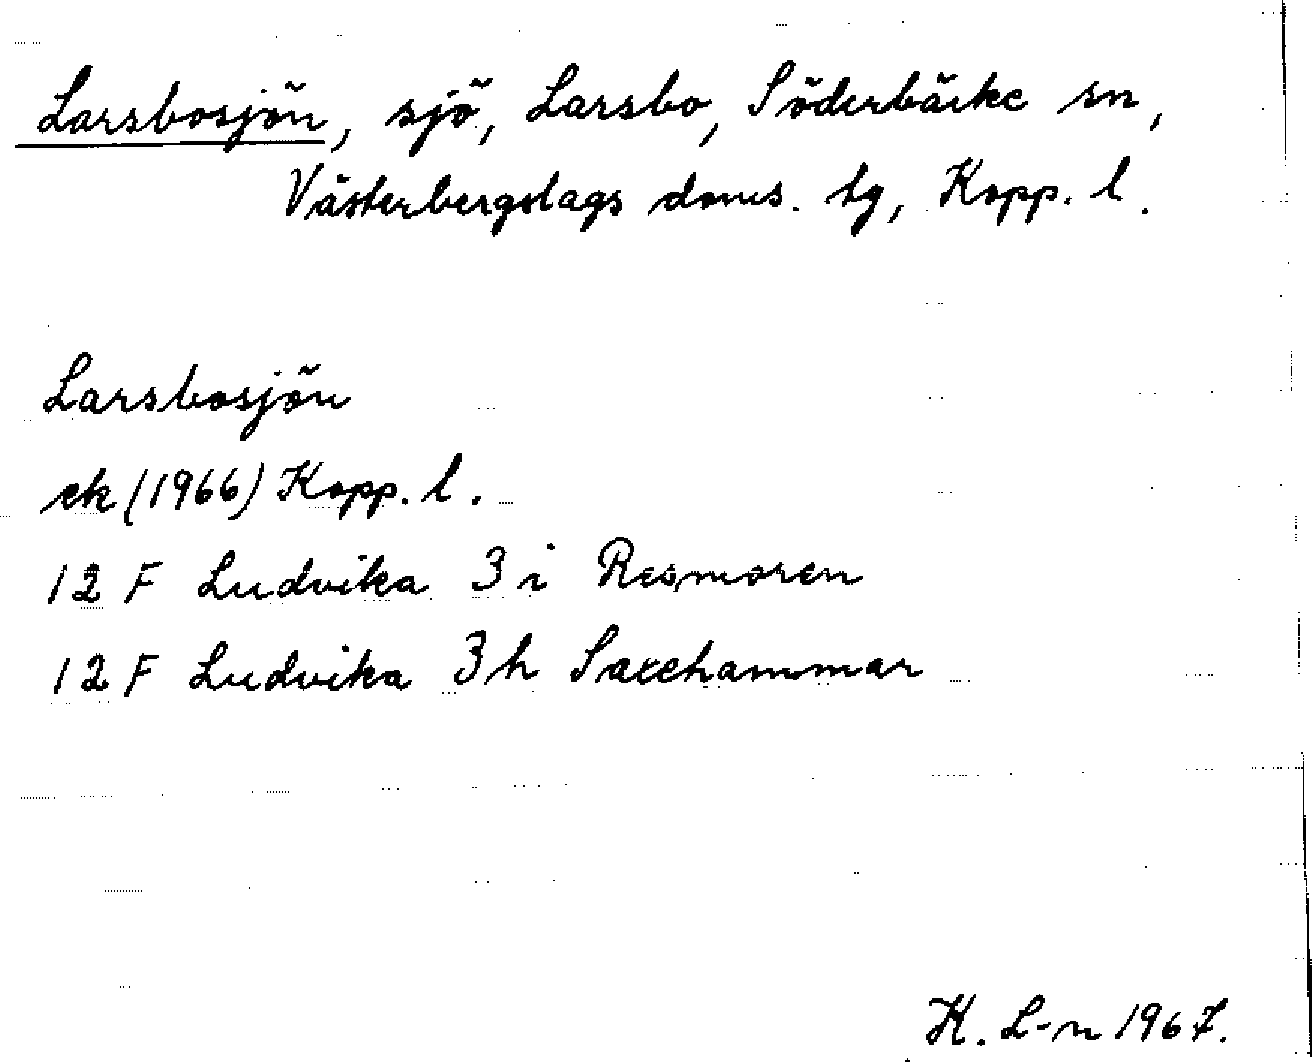 Larsbosjön, sjö, Larsbo, Söderbärke sn,
Västerbergslags doms. tg, Kopp. l.
Larsbosjön
ek (1966) Kopp. l.
12 F Ludvika 3 i Resmoren
12 F Ludvika 3h Saxehammar
K. L-n 1967.